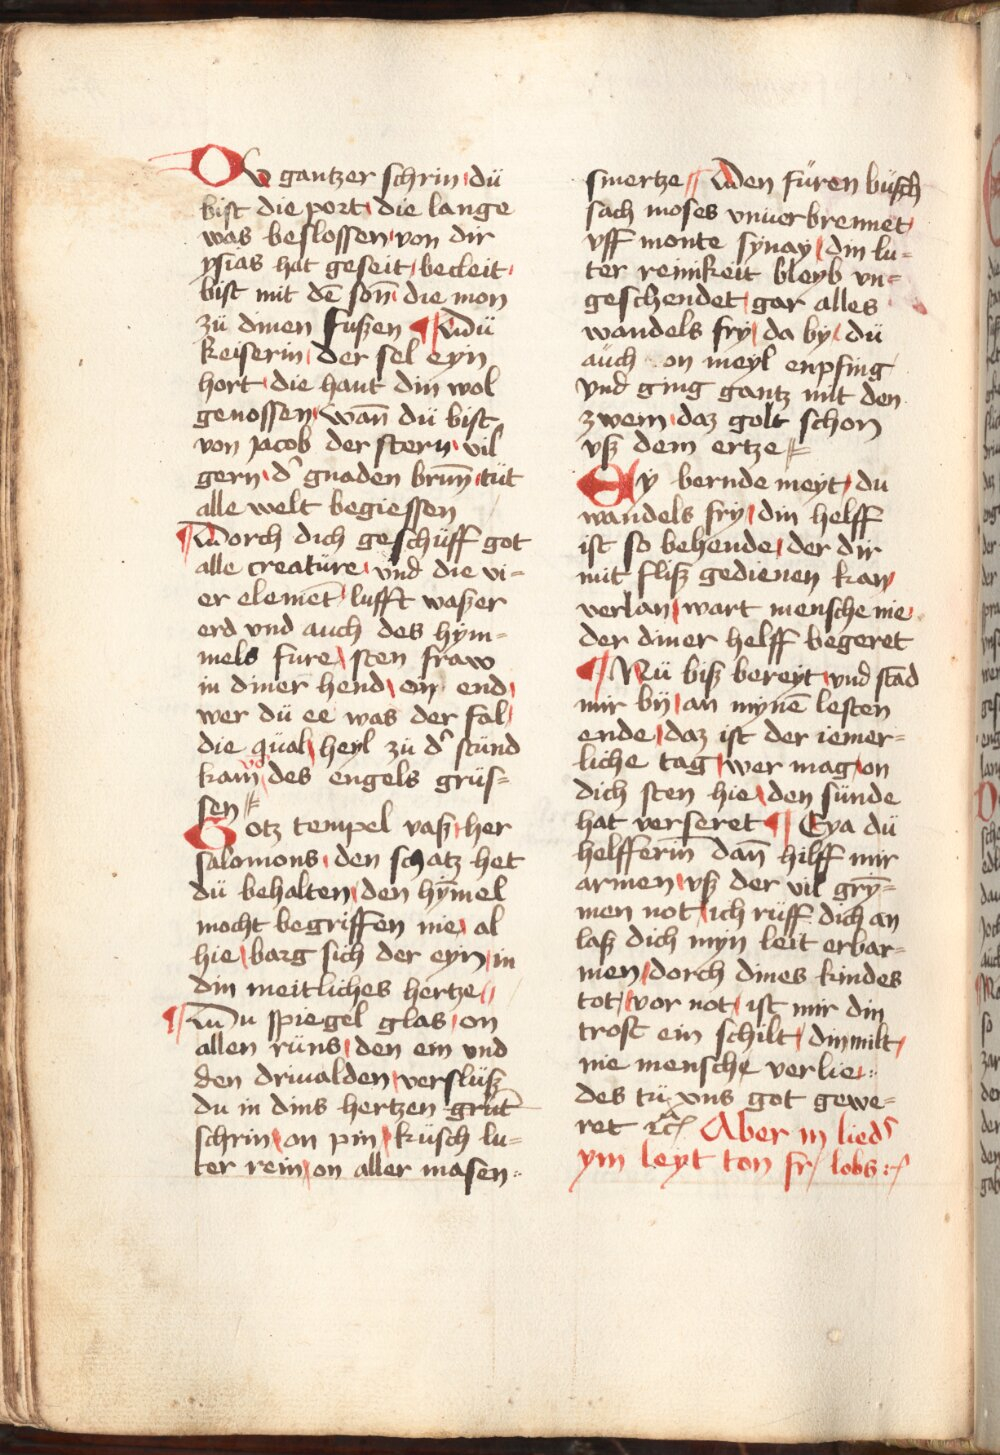 Du gantzer schrin / dü
bist die port / die lange
was beslossen / von dir
ysias hat geseit / becleit /
bist mit dē sōn / die mon
zü dinen fuszen ¶ Dü
keiserin / der sel eyn
hort / die haut din wol
genossen / wān dü bist
von jacob der stern / vil
gern / d' gnaden brun̄ / tüt
alle welt begiessen
¶ Dorch dich geschüff got
alle creatüre / vnd die vi-
er elemēt / lufft waszer
erd vnd auch des hym-
mels fure / sten fraw
in diner hend / on end /
wer dü ee was der fal /
die qüal / heyl zü d' stünd
kam / des engels grüs-
sen //
Gotz tempel vasz / her
salomons / den schatz het
dü behalten / den hȳmel
mocht begriffen nie / al
hie / barg sich der eyn / in
din meitliches hertze //
¶ Du spiegel glas / on
allen rüns / den ein vnd
den drivalden / verslüsz
du in dins hertzen grūt
schrin / on pin / küsch lu-
ter rein / on aller masen :
smertze // Den füren büsch
sach moses vnuerbrennet /
vff monte synay / din lu-
ter reinikeit bleyb vn-
geschendet / gar alles
wandels fry / da by / dü
auch on meyl enpfing
vnd ging gantz mit den
zwein / daz golt schon
vsz dem ertze //
Ey bernde meyt / du
wandels fry / din helff
ist so behende / der dir
mit flisz gedienen kan /
verlan / wart mensche nie /
der diner helff begeret
¶ Nü bisz bereyt / vnd stād
mir bÿ / an mynē lesten
ende / daz ist der iemer-
liche tag / wer mag / on
dich sten hie / den sünde
hat verseret ¶ Eya dü
helfferin dān hilff mir
armen / vsz der vil grȳ-
men not / ich rüff dich an
lasz dich myn leit erbar-
men / dorch dines kindes
tot / vor not / ist mir din
trost ein schilt / din milt /
nie mensche verlie /:
des tü vns got gewe-
ret rc̄ / Aber in lied'
ym leyt ton fr / lobs :/